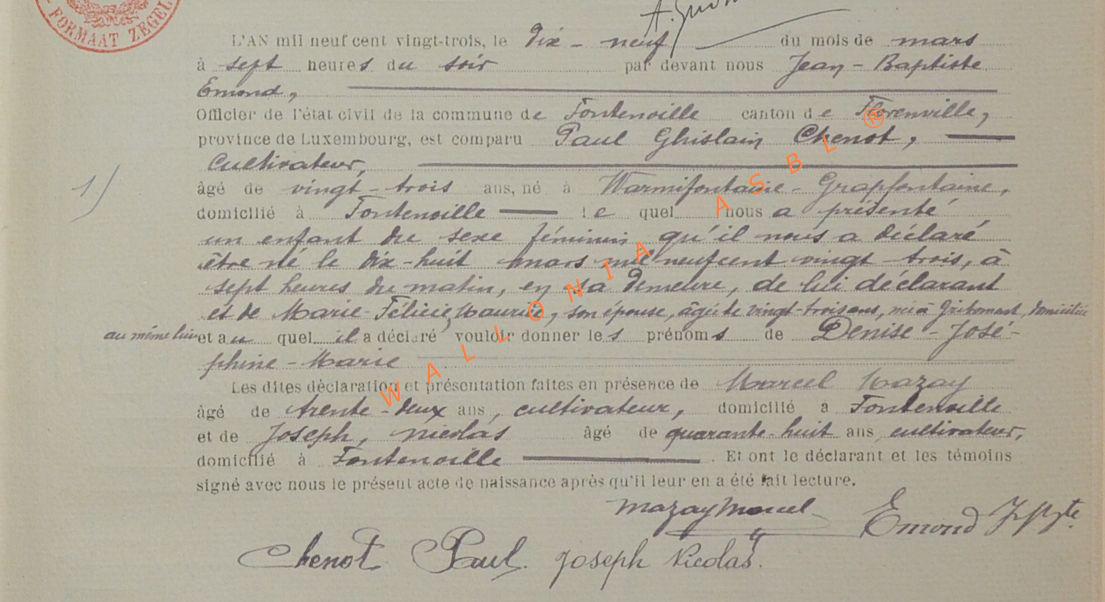 FORMAAT ZEGEL
L'AN mil neuf cent vingt-trois, le dix-neuf du mois de mars
à sept heures du soir par devant nous Jean-Baptiste
Emond,
Officier de l'état civil de la commune de Fontenoille canton de Florenville,
province de Luxembourg, est comparu Paul Ghislain Chenot,
cultivateur,
1/
âgé de vingt-trois ans, né à Warmifontaine-Grapfontaine,
domicilié à Fontenoille lequel nous a présenté
un enfant du sexe féminin qu'il nous a déclaré
être né le dix-huit mars mil neufcent vingt-trois, à
sept heures du matin, en sa demeure, de lui déclarant
et de Marie-Félicie, son épouse, âgée de vingt-trois ans, née à domiciliée
au même lieu et au quel il a déclaré vouloir donner les prénoms de Denise-José-
phine-Marie
Les dites déclaration et présentation faites en présence de Marcel Mazay
âgé de trente-deux ans, cultivateur, domicilié à Fontenoille
et de Joseph, Nicolas âgé de quarante-huit ans, cultivateur,
domicilié à Fontenoille. Et ont le déclarant et les témoins
signé avec nous le présent acte de naissance après qu'il leur en a été fait lecture.
Mazay Marcel Emond
Chenot Paul. Joseph Nicolas.
WALLONIA ASBL ®